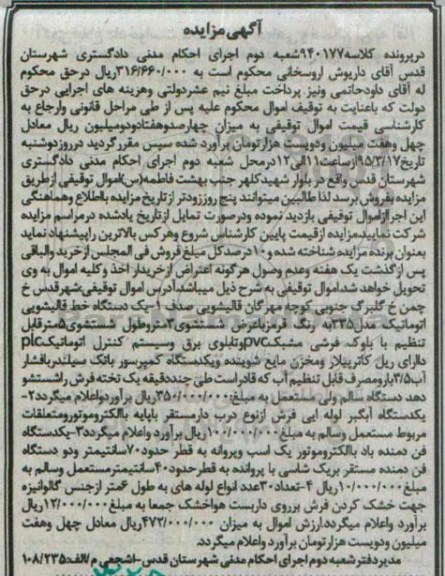 آگهی مزایده
درپرونده کلاسه۹۴۰۱۷۷شعبه دوم اجرای احکام مدنی دادگستری شهرستان
قدس آقای داریوش اروسخانی محکوم است به ۳۱۶/۶۶۰/۰۰۰ریال درحق محکوم
له آقای داودحاتمی ونیز پرداخت مبلغ نیم عشردولتی وهزینه های اجرایی درحق
دولت که باعنایت به توقیف اموال محکوم علیه پس از طی مراحل قانونی وارجاع به
کارشناسی قیمت اموال توقیفی به میزان چهارصدوهفتادودومیلیون ریال معادل
چهل وهفت میلیون ودویست هزارتومان برآورد شده سپس مقررگردید درروزدوشنبه
تاریخ۹۵/۳/۱۷ازساعت۱۱الی۱۲درمحل شعبه دوم اجرای احکام مدنی دادگستری
شهرستان قدس واقع در بلوار شهیدکلهر جنب بهشت فاطمه(س)اموال توقیفی ازطریق
مزایده بفروش برسد لذا طالبین میتوانند پنج روززودتر ازتاریخ مزایده بااطلاع وهماهنگی
این اجراازاموال توقیفی بازدید نموده ودرصورت تمایل ازتاریخ یادشده درمراسم مزایده
شرکت نمایند.مزایده ازقیمت پایین کارشناس شروع وهرکس بالاترین راپیشنهاد نماید
بعنوان برنده مزایده شناخته شده و۱۰درصدکل مبلغ فروش فی المجلس ازخرید والباقی
پس ازگذشت یک هفته وعدم وصول هرگونه اعتراض ازخریدار اخذ وکلیه اموال به وی
تحویل خواهد شد.اموال توقیفی به شرح ذیل میباشد.آدرس اموال توقیفی:شهرقدس خ
چمن خ گلبرگ جنوبی کوچه مهرگان قالیشویی صدف ۱-یک دستگاه خط قالیشویی
اتوماتیک مدل۳۳۵به رنگ قرمزباعرض شستشوی۴متروطول شستشوی۵مترقابل
تنظیم با بلوک فرشی مشبکpvcوتابلوی برق وسیستم کنترل اتوماتیکplc
داارای ریل کاترپیلار ومخزن مایع شوینده ویکدستگاه کمپرسور بانک سیلندربافشار
آب۳/۵بارومصرف قابل تنظیم آب که قادراست طی چنددقیقه یک تخته فرش راشستشو
دهد دستگاه سالم ولی مستعمل به مبلغ۳۵۰/۰۰۰/۰۰۰ریال برآوردواعلام میگردد۲-
یکدستگاه آبگیر لوله ایی فرش ازنوع درب دارمستقر باپایه باالکتروموتورومتعلقات
مربوط مستعمل وسالم به مبلغ ۱۰۰/۰۰۰/۰۰۰ریال برآورد واعلام میگردد۳-یکدستگاه
فن دمنده باد باالکتروموتور یک اسب وپروانه به قطر حدود۷۰سانتیمتر ودو دستگاه
فن دمنده مستقر بریک شاسی با پروانده به قطرحدود۴۰سانتیمترمستعمل وسالم به
مبلغ۱۰/۰۰۰/۰۰۰ریال ۴-تعداد۳۰عدد انواع لوله های به طول ۶متر ازجنس گالوانیزه
جهت خشک کردن فرش برروی داربست هواخشک جمعا به مبلغ۱۲/۰۰۰/۰۰۰ریال
برآورد واعلام میگرددارزش اموال به میزان ۴۷۲/۰۰۰/۰۰۰ریال معادل چهل وهفت
میلیون ودویست هزار تومان برآورد واعلام میگردد.
مدیردفترشعبه دوم اجرای احکام مدنی شهرستان قدس-اشجعی م/الف:۱۰۸/۲۳۵